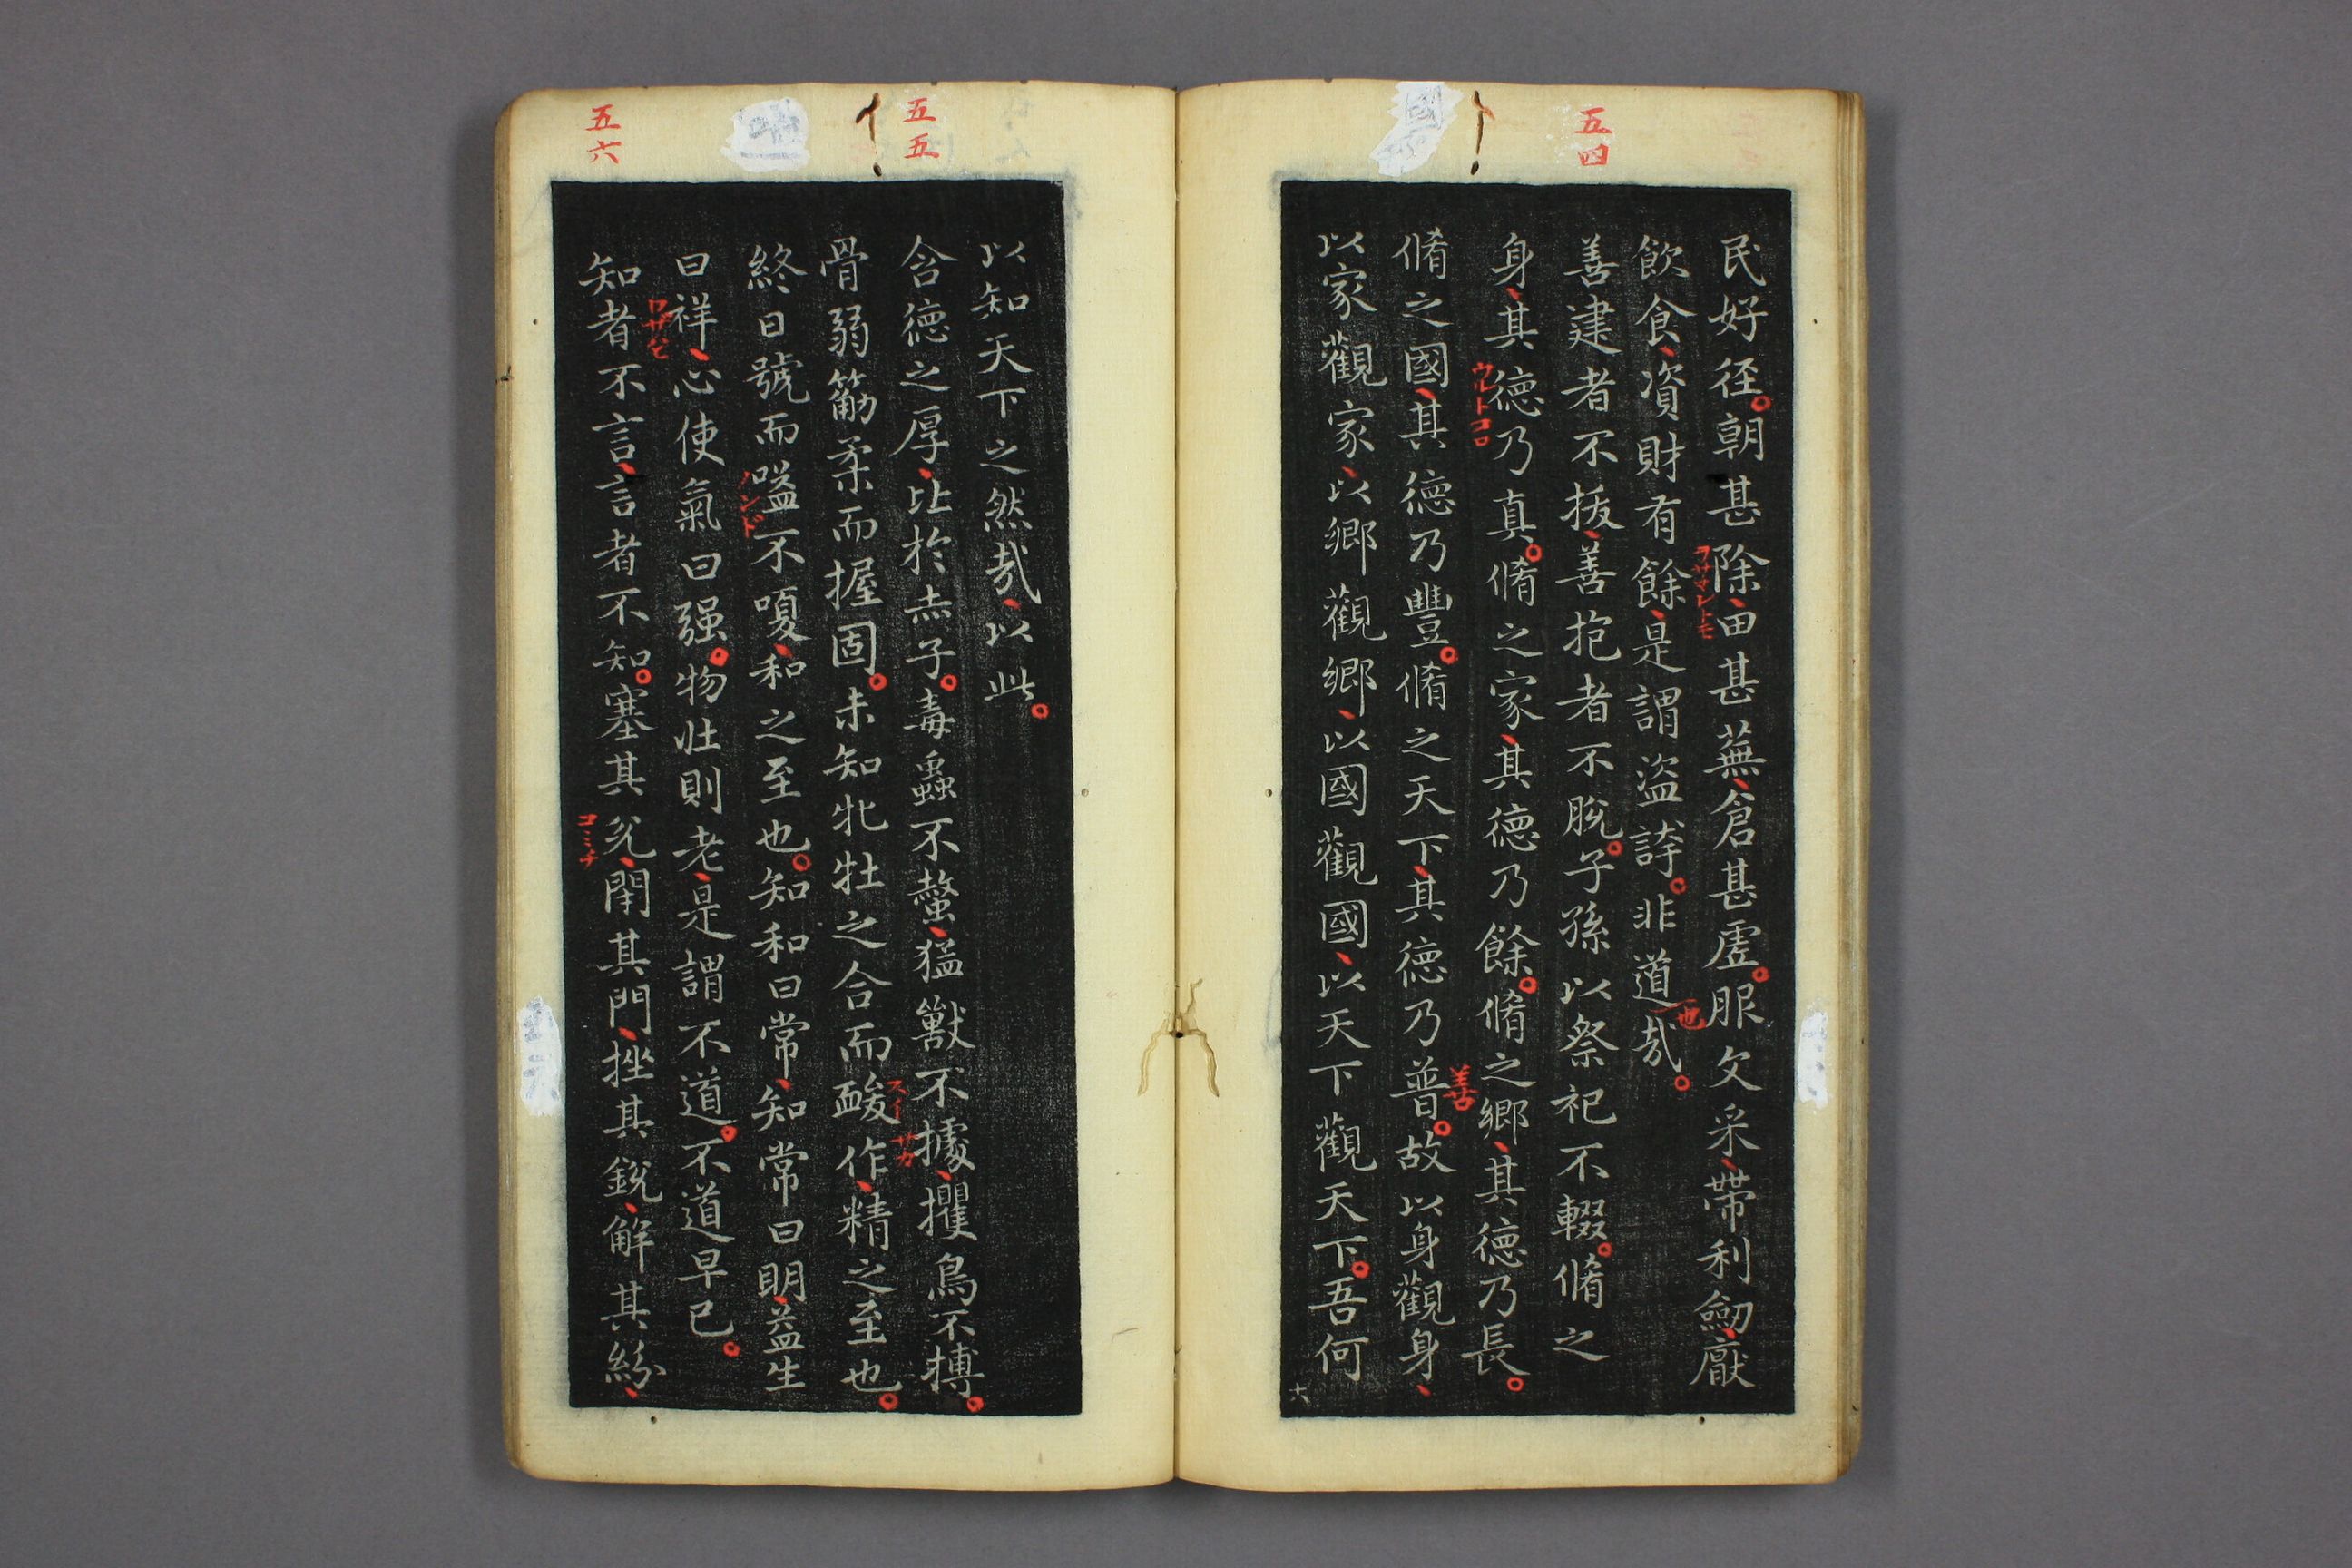 五四
民好径。朝甚除、田甚蕪、倉甚虛。服文采、帶利劒、厭
飲食、資財有餘、是謂盜誇。非道哉。
也
善建者不拔、善抱者不脫。子孫以祭祀不輟。脩之
身、其德乃真。脩之家、其德乃餘。脩之鄉、其德乃長。
ウルトコロ
脩之國、其德乃豐。脩之天下、其德乃普。故以身觀身、
善
以家觀家、以鄉觀鄉、以國觀國、以天下觀天下。吾何
五五
以知天下之然哉、以此。
含德之厚、比於赤子。毒蟲不螫、猛獸不據、攫鳥不搏。
骨弱筋柔而握固。未知牝牡之合而酸作、精之至也。
終日號而嗌不嗄、和之至也。知和曰常、知常曰明、益生
ノンド
曰祥、心使氣曰强。物壯則老、是謂不道。不道早已。
五六
知者不言、言者不知。塞其兌、閉其門、挫其銳、解其紛、
コミチ